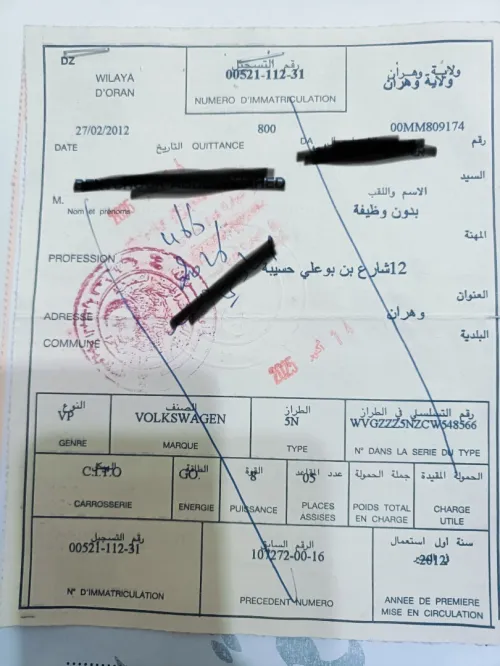 DZ
WILAYA
D'ORAN
رقم التسجيل
00521-112-31
NUMERO D'IMMATRICULATION
ولاية وهران
ولاية وهران
27/02/2012 800 00MM809174
DATE التاريخ QUITTANCE DA رقم
السيد
M. الاسم واللقب
Nom et prénoms
بدون وظيفة
المهنة
PROFESSION
12شارع بن بوعلي حسيبة
العنوان
ADRESSE
وهران
COMMUNE البلدية
2025
النوع الصنف الطراز رقم التسلسلي في الطراز
VP VOLKSWAGEN 5N WVGZZZ5NZCW548566
GENRE MARQUE TYPE N° DANS LA SERIE DU TYPE
الهيكل الطاقة القوة عدد المقاعد جملة الحمولة الحمولة المقيدة
C.I.T.O GO. 8 05
CARROSSERIE ENERGIE PUISSANCE PLACES ASSISES POIDS TOTAL EN CHARGE CHARGE UTILE
رقم التسجيل الرقم السابق سنة أول استعمال
00521-112-31 107272-00-16 2012
N° D'IMMATRICULATION PRECEDENT NUMERO ANNEE DE PREMIERE MISE EN CIRCULATION